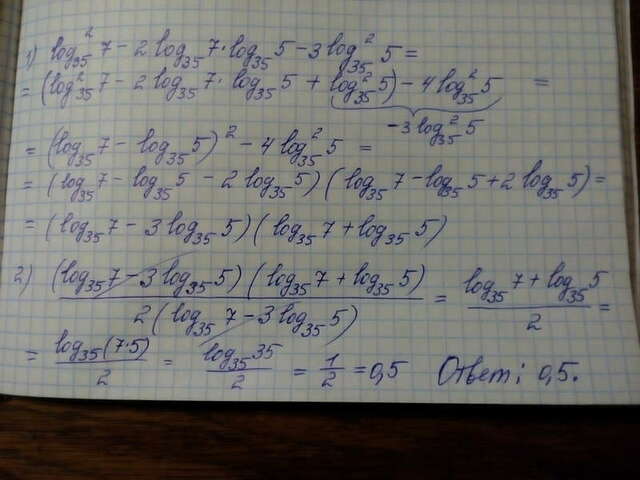 1) log²₃₅ 7 − 2 log₃₅ 7 · log₃₅ 5 − 3 log²₃₅ 5 =
= (log²₃₅ 7 − 2 log₃₅ 7 · log₃₅ 5 + log²₃₅ 5) − 4 log²₃₅ 5 =
−3 log²₃₅ 5
= (log₃₅ 7 − log₃₅ 5)² − 4 log²₃₅ 5 =
= (log₃₅ 7 − log₃₅ 5 − 2 log₃₅ 5)(log₃₅ 7 − log₃₅ 5 + 2 log₃₅ 5) =
= (log₃₅ 7 − 3 log₃₅ 5)(log₃₅ 7 + log₃₅ 5)
2) (log₃₅ 7 − 3 log₃₅ 5)(log₃₅ 7 + log₃₅ 5) / 2(log₃₅ 7 − 3 log₃₅ 5) = log₃₅ 7 + log₃₅ 5 / 2 =
= log₃₅(7·5) / 2 = log₃₅ 35 / 2 = 1/2 = 0,5 Ответ: 0,5.